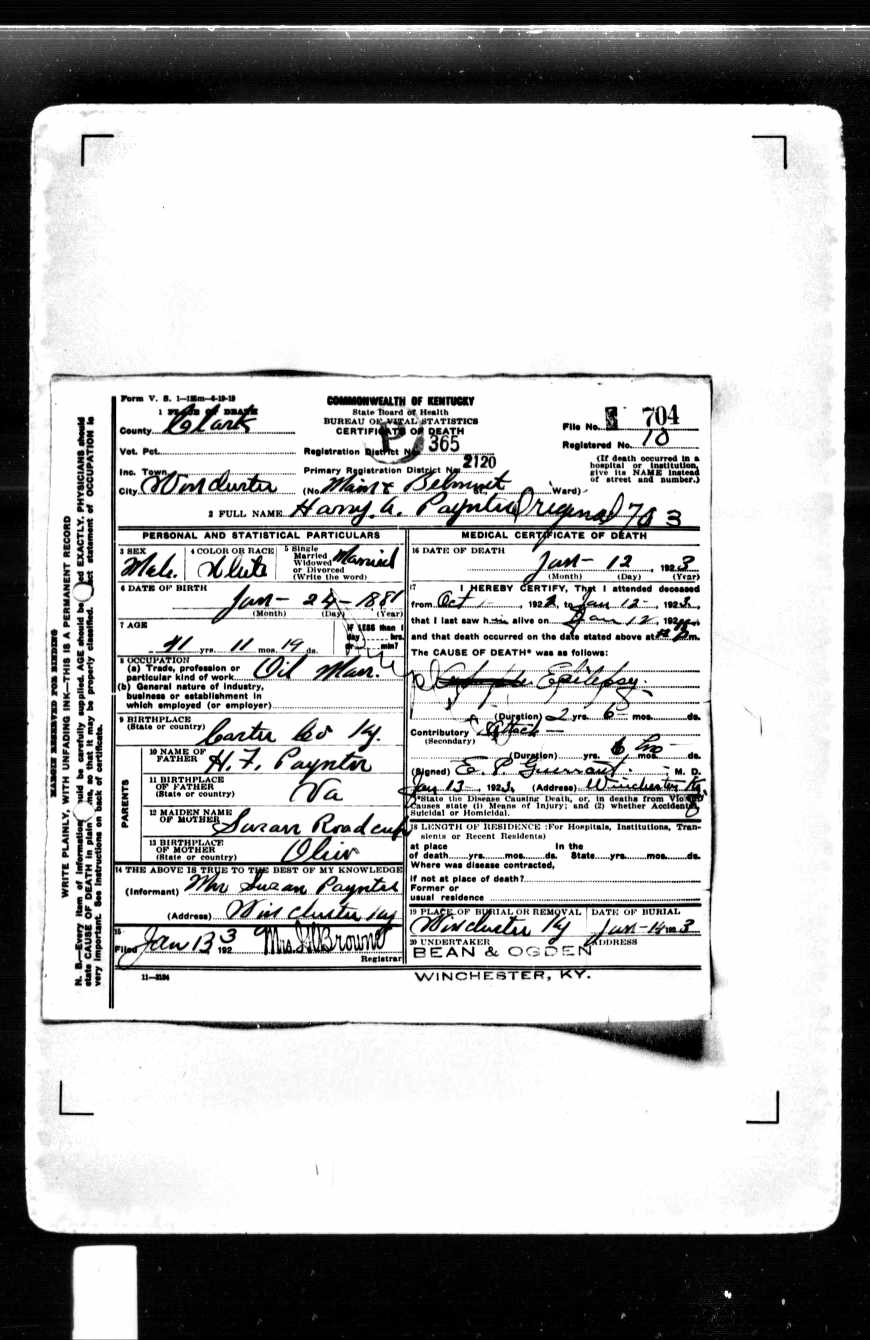 Form V. S. 1—125m—4-19-19
COMMONWEALTH OF KENTUCKY
State Board of Health
BUREAU OF VITAL STATISTICS
CERTIFICATE OF DEATH
1 PLACE OF DEATH
County Clark
Vot. Pct.
Inc. Town
City Winchester
Registration District No. 365
Primary Registration District No. 2120
(No. Main & Belmont St., Ward)
File No. 704
Registered No. 10
(If death occurred in a
hospital or institution,
give its NAME instead
of street and number.)
2 FULL NAME Harry A. Paynter Original 703
PERSONAL AND STATISTICAL PARTICULARS
3 SEX Male.
4 COLOR OR RACE White
5 Single
Married
Widowed
or Divorced
(Write the word) Married
6 DATE OF BIRTH
Jan- 24-1881
(Month) (Day) (Year)
7 AGE
41 yrs. 11 mos. 19 ds.
IF LESS than 1
day hrs.
or min?
8 OCCUPATION
(a) Trade, profession or
particular kind of work Oil Man.
(b) General nature of industry,
business or establishment in
which employed (or employer)
9 BIRTHPLACE
(State or country) Carter Co Ky.
PARENTS
10 NAME OF
FATHER H. F. Paynter
11 BIRTHPLACE
OF FATHER
(State or country) Va
12 MAIDEN NAME
OF MOTHER Susan Roadcup
13 BIRTHPLACE
OF MOTHER
(State or country) Ohio
14 THE ABOVE IS TRUE TO THE BEST OF MY KNOWLEDGE
(Informant) Mrs Susan Paynter
(Address) Winchester Ky
15
Filed Jan 13 1923 Mrs. Browne
Registrar
11—3184
MEDICAL CERTIFICATE OF DEATH
16 DATE OF DEATH
Jan- 12, 1923
(Month) (Day) (Year)
17 I HEREBY CERTIFY, That I attended deceased
from Oct 1, 1922, to Jan 12, 1923,
that I last saw him alive on Jan 12, 192
and that death occurred on the date stated above at P m.
The CAUSE OF DEATH* was as follows:
Epilepsy.
(Duration) 2 yrs. 6 mos. ds.
Contributory Attack
(Secondary)
(Duration) yrs. mos. ds.
(Signed) E. P. Guerrant, M. D.
Jan 13, 1923, (Address) Winchester Ky
*State the Disease Causing Death, or, in deaths from Violent
Causes state (1) Means of Injury; and (2) whether Accidental,
Suicidal or Homicidal.
18 LENGTH OF RESIDENCE (For Hospitals, Institutions, Tran-
sients or Recent Residents)
at place In the
of death yrs. mos. ds. State yrs. mos. ds.
Where was disease contracted,
if not at place of death?
Former or
usual residence
19 PLACE OF BURIAL OR REMOVAL
Winchester Ky
DATE OF BURIAL
Jan-14 1923
20 UNDERTAKER ADDRESS
BEAN & OGDEN
WINCHESTER, KY.
MARGIN RESERVED FOR BINDING
WRITE PLAINLY, WITH UNFADING INK—THIS IS A PERMANENT RECORD
N. B.—Every item of information should be carefully supplied. AGE should be stated EXACTLY. PHYSICIANS should
state CAUSE OF DEATH in plain terms, so that it may be properly classified. Exact statement of OCCUPATION is
very important. See instructions on back of certificate.